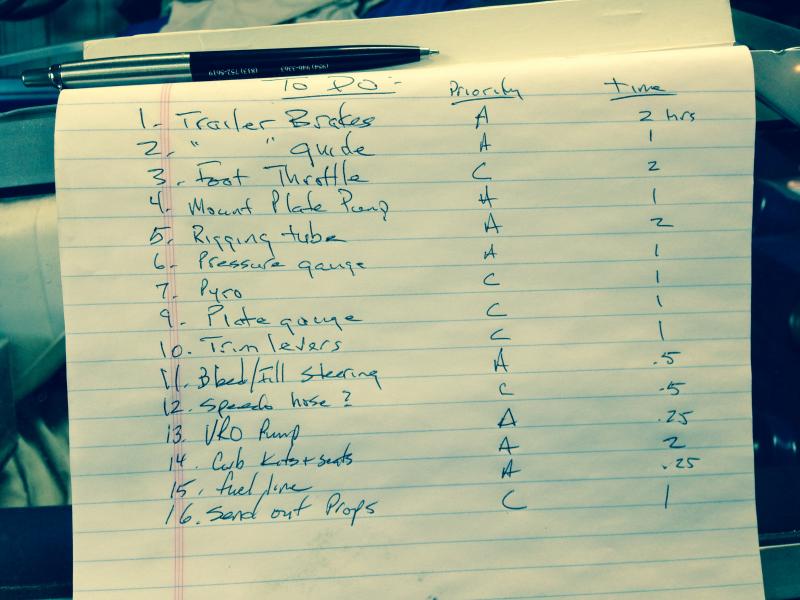 (954) 946-3363
(813) 752-5619
To Do:- Priority time
1. Trailer Brakes A 2 hrs
2. " " guide A 1
3. Foot Throttle C 2
4. Mount Plate Pump A 1
5. Rigging tube A 2
6. Pressure gauge A 1
7. Pyro C 1
9. Plate gauge C 1
10. Trim levers C 1
11. Bleed/Fill Steering A .5
12. Speedo hose? C .5
13. VRO Pump A .25
14. Carb Kits + seats A 2
15. fuel line A .25
16. Send out Props C 1